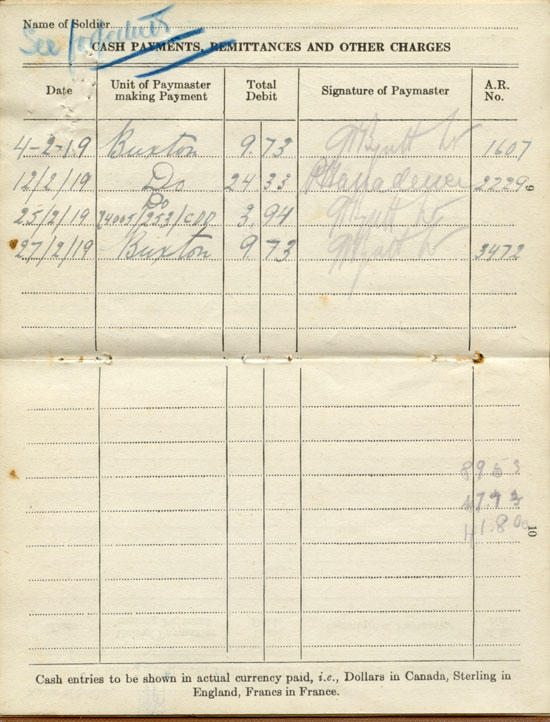 Name of Soldier
See
CASH PAYMENTS, REMITTANCES AND OTHER CHARGES
Date Unit of Paymaster making Payment Total Debit Signature of Paymaster A.R. No.
4-2-19 Buxton 9.73 1607
12/2/19 Do 24 33 2229
Do
25/2/19 3.94
27/2/19 Buxton 9.73 3472
9
10
Cash entries to be shown in actual currency paid, i.e., Dollars in Canada, Sterling in
England, Francs in France.